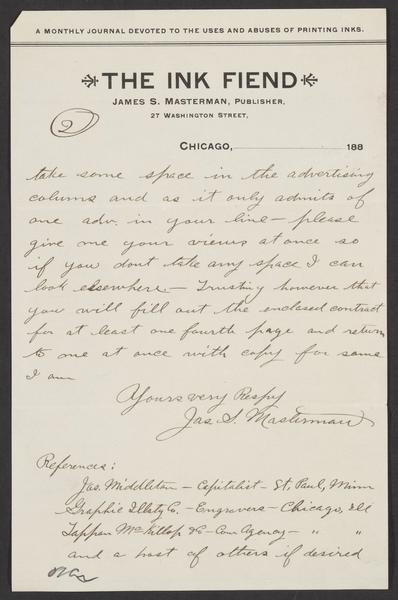 A MONTHLY JOURNAL DEVOTED TO THE USES AND ABUSES OF PRINTING INKS.
THE INK FIEND
JAMES S. MASTERMAN, PUBLISHER,
27 WASHINGTON STREET,
2
CHICAGO, 188
take some space in the advertising
colums and as it only admits of
one adv. in your line — please
give me your views at once so
if you dont take any space I can
look elsewhere — Trusting however that
you will fill out the enclosed contract
for at least one fourth page and return
to one at once with copy for same
I am
Yours very Respy
Jas. S. Masterman
References:
Jas. Middleton — Capitalist — St. Paul, Minn
Graphic Illstg Co. — Engravers — Chicago, Ill
Tappan McKillop & Co — Com Agency — " "
and a host of others if desired